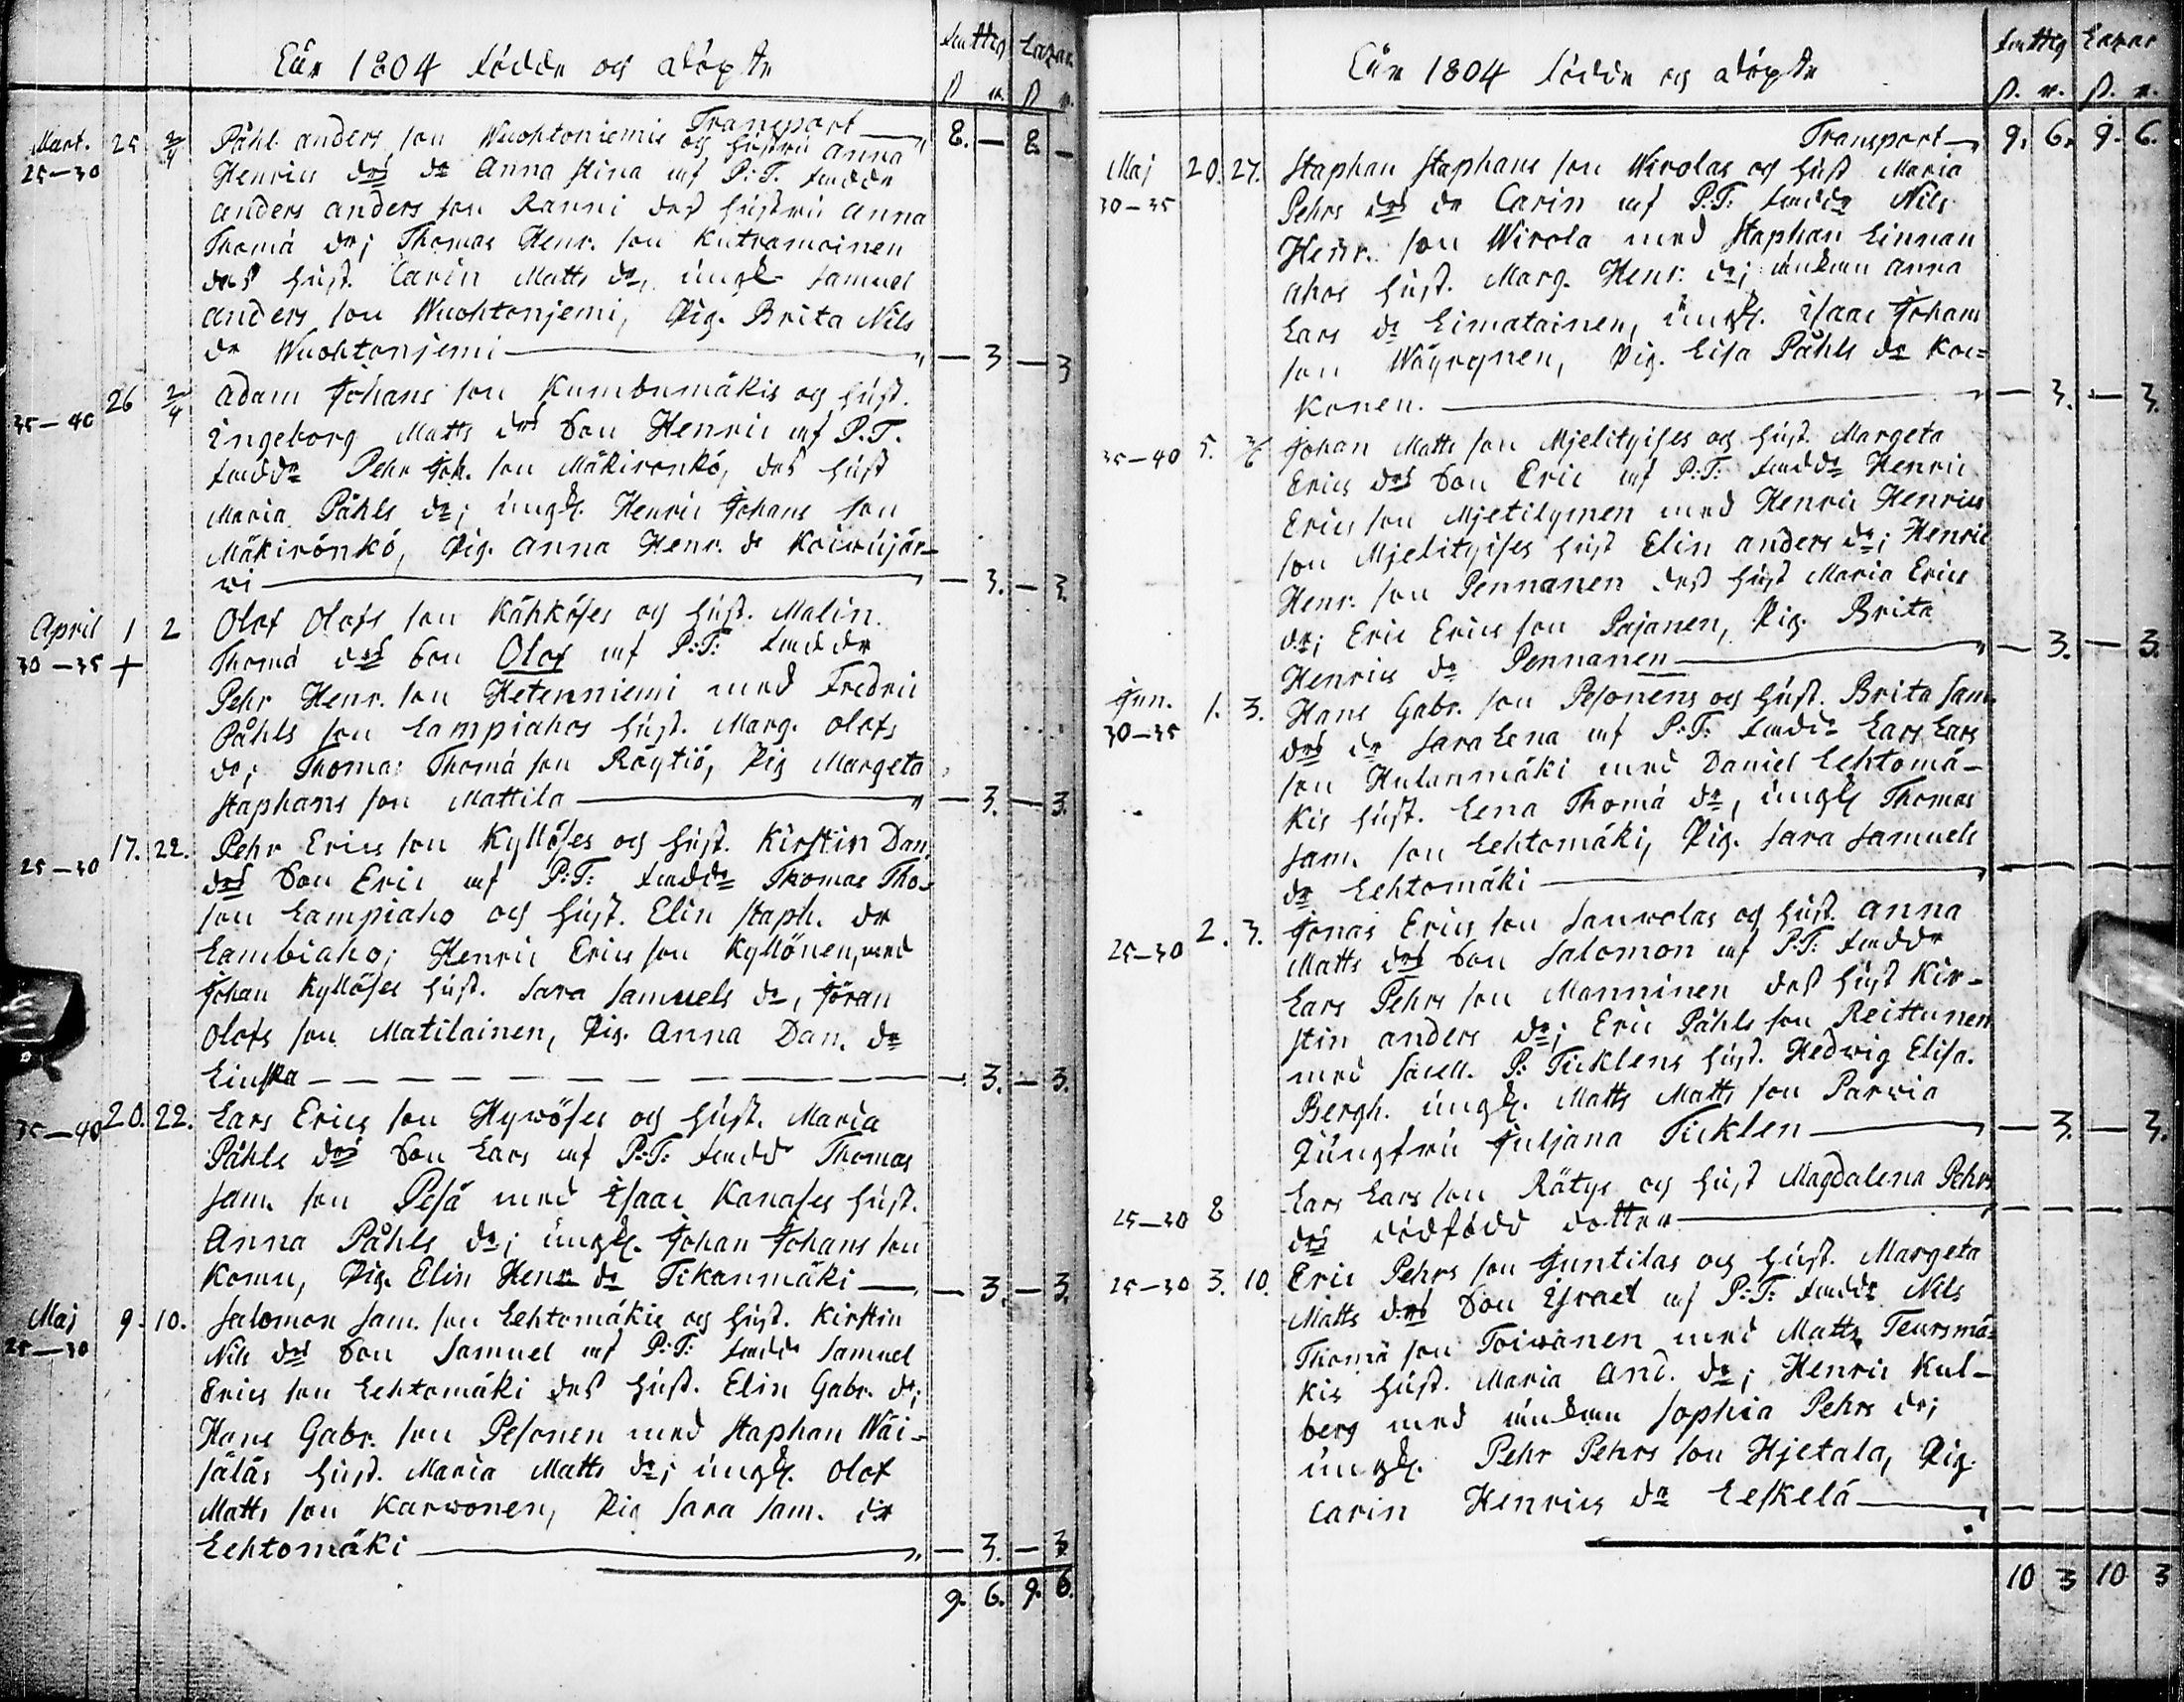 1804 födde og döpte
Fattig Lazar.
Transport — 8. — 8. —
Mart. 25 2/4 Påhl anders son Wuohtoniemis og hustru Anna
25—30 Henrics dr Anna Stina af P:T. fadde
anders anders son Ranni des hustru Anna
Thomä dr; Thomas Henr. son Kutramoinen
des hust. Carin Matts dr, ungk. Samuel
anders son Wuohtonjemi, Pig. Brita Nils
dr Wuohtonjemi — 3 — 3
26 2/4 Adam Johans son Kumbumäkis og hust.
35—40 Ingeborg Matts son Henric af P.T.
fadde Pehr Joh. son Mäkirönkö, des hust
Maria Påhls dr; ungk. Henric Johans son
Mäkirönkö, Pig. Anna Henr. dr Koiwujär-
wi — 3. — 3.
April 1 2 Olof Olofs son Kähköses og hust. Malin
30—35 + Thomä son Olof af P:T: fadde
Pehr Henr. son Hetenniemi med Fredric
Påhls son Lampiahos hust. Marg. Olofs
dr; Thomas Thomä son Röytiö, Pig Margeta
Staphans son Mattila — 3. — 3.
17. 22. Pehr Erics son Kyllöses og hust. Kirstin Dan.
25—30 son Eric af P:T: fadde Thomas Tho.
son Lampiaho og hust. Elin Staph. dr
Lambiaho; Henric Erics son Kyllönen, med
Johan Kyllöses hust. Sara Samuels dr, Jöran
Olofs son Matilainen, Pig. Anna Dan. dr
— 3. — 3.
20. 22. Lars Erics son Hywöses og hust. Maria
35—40 Påhls son Lars af P:T: fadd Thomas
Sam. son Pesä med Isaac Kanases hust.
Anna Påhls dr; ungk. Johan Johans son
Komu, Pig. Elin Henr dr Tikanmäki — 3. — 3.
Maj 9. 10. Salomon Sam. son Lehtomäkis og hust. Kirstin
25—30 Nils son Samuel af P:T: fadde Samuel
Erics son Lehtomäki des hust. Elin Gabr. dr;
Hans Gabr. son Pesonen med Staphan Wäi-
säläs hust. Maria Matts dr; ungk. Olof
Matts son Karwonen, Pig Sara Sam. dr
Lehtomäki — 3. — 3
9. 6. 9. 6.
1804 födde og döpte
Fattig Lazar
Transport — 9. 6. 9. 6.
Maj 20. 27. Staphan Staphans son Wirolas og hust Maria
30—35 Pehrs dr Carin af P:T: fadde Nils
Henr. son Wirola med Staphan Linnan
ahos hust. Marg. Henr: dr; änkan Anna
Lars dr Limatainen, ungk. Isaac Johans
son Wäyrynen, Pig. Lisa Påhls dr Koc=
konen. — 3. — 3.
35—40 5. Johan Matts son Mjelityises og hust. Margeta
Erics son Eric af P:T: fadde Henric
Erics son Mjetilynen med Henric Henrics
son Mjelityises hust Elin anders dr; Henric
Henr. son Pennanen des hust Maria Erics
dr; Eric Erics son Pajanen, Pig. Brita
Henrics dr Pennanen — 3. — 3.
Jun. 1. 3. Hans Gabr. son Pesonens og hust. Brita Sam.
30—35 dr Sara Lena af P:T: fadde Lars Lars
son Hulanmäki med Daniel Lehtomä-
kis hust. Lena Thomä dr, ungk Thomas
Sam. son Lehtomäki, Pig. Sara Samuels
dr Lehtomäki —
2. 3. Jonas Erics son Sauwolas og hust. Anna
25—30 Matts son Salomon af P:T: fadde
Lars Pehrs son Manninen des hust Kir-
stin anders dr; Eric Påhls son Reittunen
med P: Ticklens hust. Hedwig Elisa.
Bergh. ungk. Matts Matts son Parwia
Jungfru Juljana Ticklen — 3. — 3.
25—30 8 Lars Lars son Rätys og hust Magdalena Pehrs
dödfödd dotter —
25—30 3. 10. Eric Pehrs son Juntilas og hust. Margeta
Matts son Israel af P:T: fadde Nils
Thomä son Toiwanen med Matts Teursmä-
kis hust. Maria And. dr; Henric Kul-
berg med änkan Sophia Pehrs dr;
ungk. Pehr Pehrs son Hjetala, Pig.
Carin Henrics dr Leskelä —
10 3 10 3